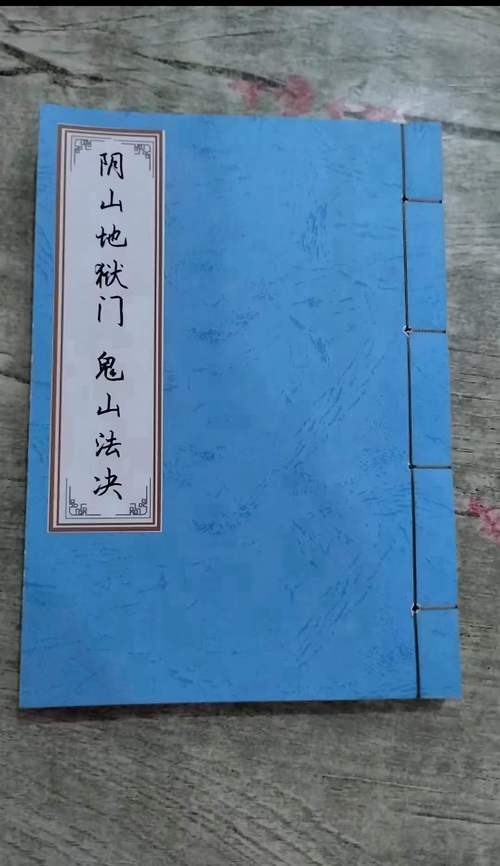 阴山地狱门 鬼山法决